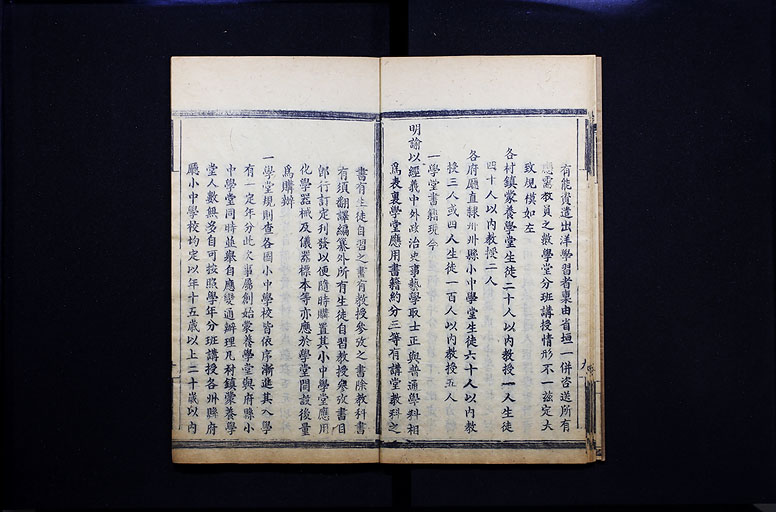 有能資遣出洋學習者稟由省垣一併咨送所有
應需教員之數學堂分班講授情形不一茲定大
致規模如左
各村鎮蒙養學堂生徒二十人以內教授一人生徒
四十人以內教授二人
各府廳直隸州州縣小中學堂生徒六十人以內教
授三人或四人生徒一百人以內教授五人
一學堂書籍現今
明諭以經義中外政治史事藝學取士正與普通學科相
為表裏學堂應用書籍約分三等有講堂教科之
書有生徒自習之書有教授參攷之書除教科書
有須翻譯編纂外所有生徒自習教授參攷書目
即行訂定刊發以便隨時購置其小中學堂應用
化學器械及儀器標本等亦應於學堂開設後量
為購辦
一學堂規則查各國小中學校皆依序漸進其入學
有一定年分此次事屬創始蒙養學堂與府縣小
中學堂同時並舉自應變通辦理凡村鎮蒙養學
堂人數無多自可按照學年分班講授各州縣府
廳小中學校均定以年十五歲以上二十歲以內